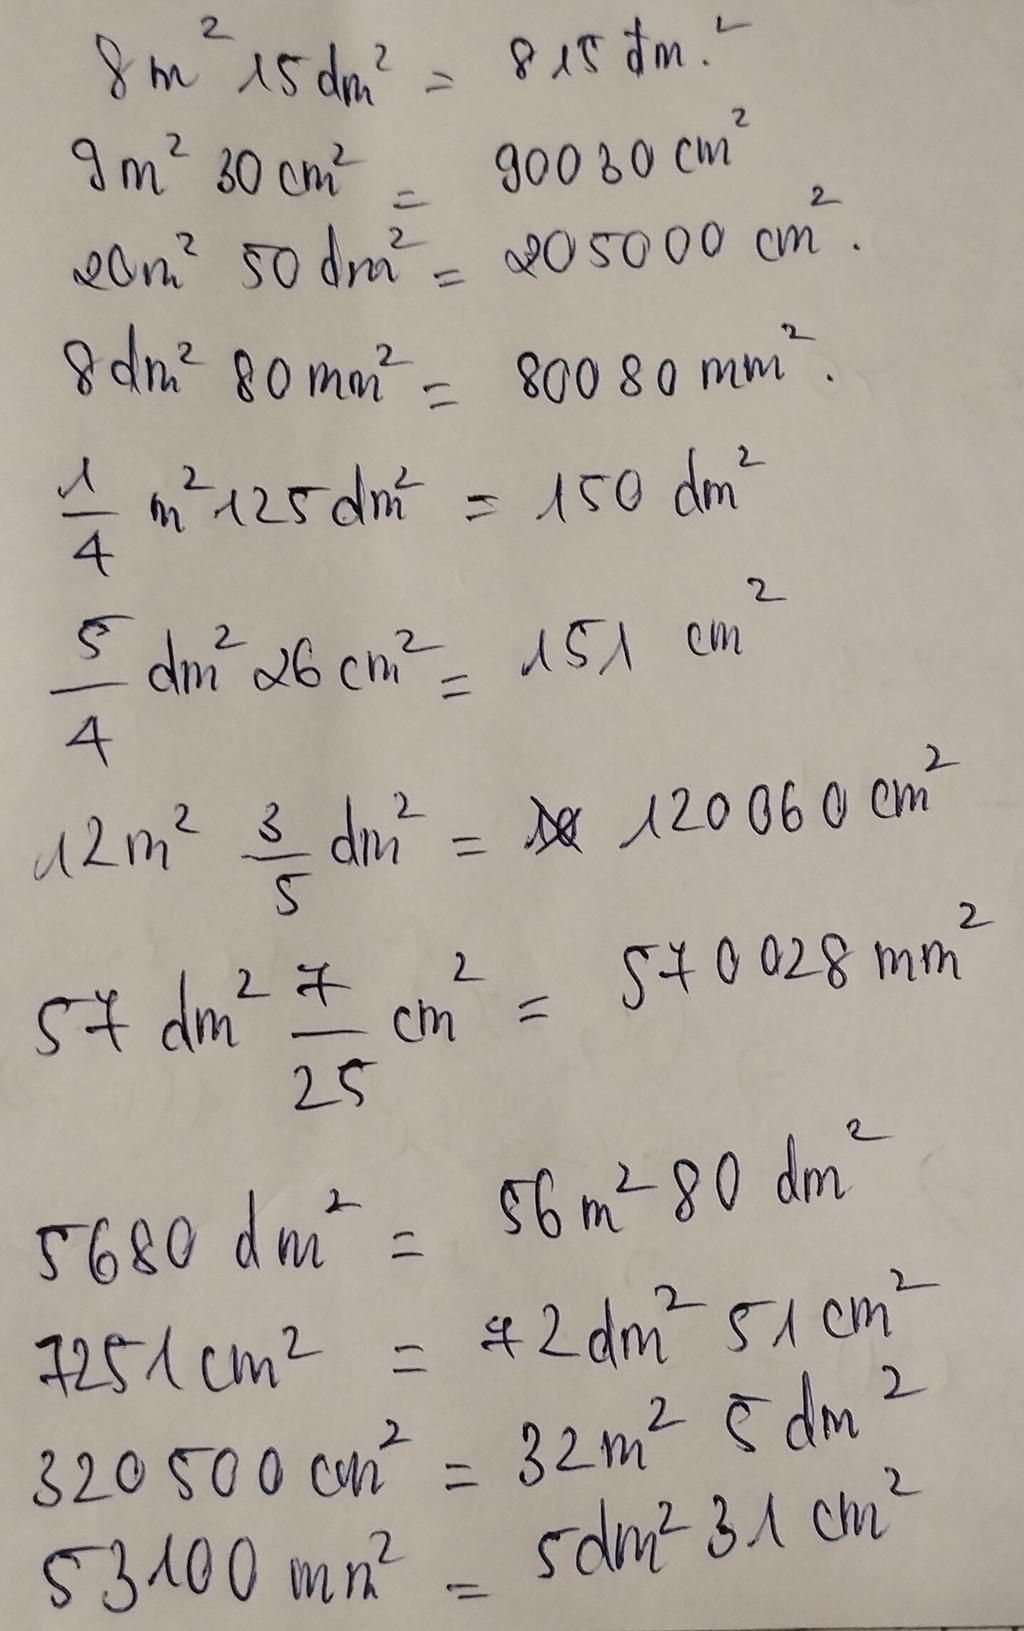 8m² 15dm² = 815 dm.²
9m² 30cm² = 90030 cm²
20m² 50dm² = 205000 cm².
8dm² 80mm² = 80080 mm².
1/4 m² 125dm² = 150 dm²
5/4 dm² 26cm² = 151 cm²
12m² 3/5 dm² = 120060 cm²
57 dm² 7/25 cm² = 570028 mm²
5680 dm² = 56m² 80 dm²
7251cm² = 72dm² 51cm²
320500 cm² = 32m² 5dm²
53100 mm² = 5dm² 31 cm²